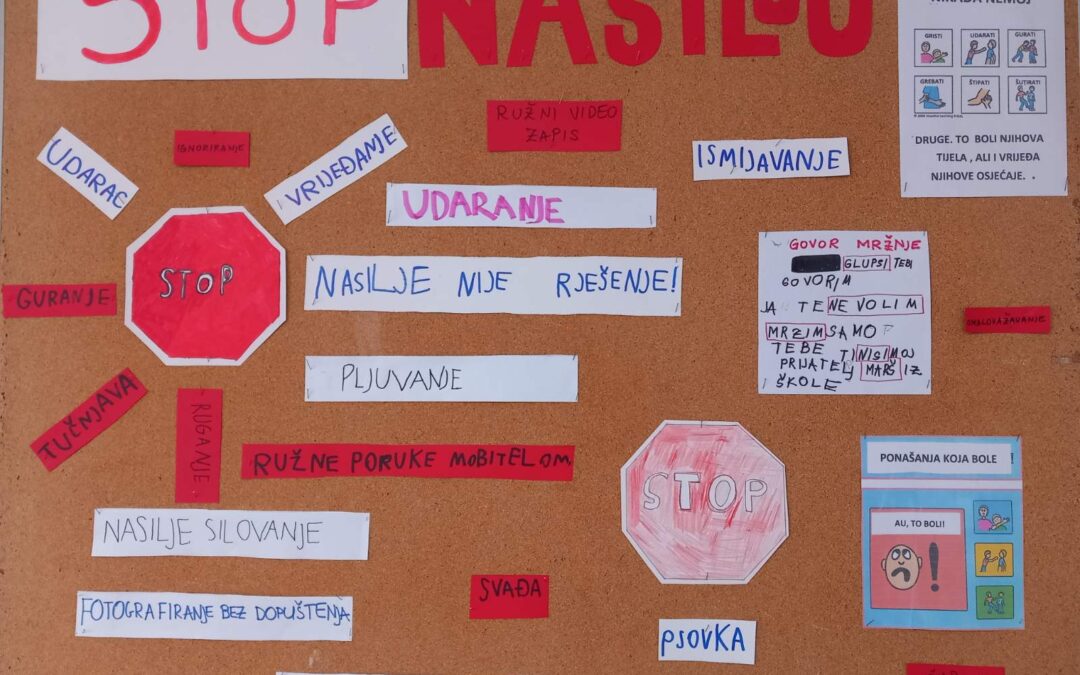 STOP NASILJU
NIKADA NEMOJ
GRISTI UDARATI GURATI
GREBATI ŠTIPATI ŠUTIRATI
DRUGE. TO BOLI NJIHOVA
TIJELA , ALI I VRIJEĐA
NJIHOVE OSJEĆAJE. .
UDARAC
IGNORIRANJE
VRIJEĐANJE
RUŽNI VIDEO
ZAPIS
ISMIJAVANJE
UDARANJE
STOP
NASILJE NIJE RJEŠENJE!
GURANJE
GOVOR MRŽNJE
GLUPSI TEBI
GOVORIM
JA TE NE VOLIM
MRZIM SAMO
TEBE TI NISI MOJ
PRIJATELJ MARŠ IZ
ŠKOLE
OMALOVAŽAVANJE
PLJUVANJE
TUČNJAVA
RUGANJE
RUŽNE PORUKE MOBITELOM
STOP
PONAŠANJA KOJA BOLE !
AU, TO BOLI!
!
NASILJE SILOVANJE
SVAĐA
FOTOGRAFIRANJE BEZ DOPUŠTENJA
PSOVKA